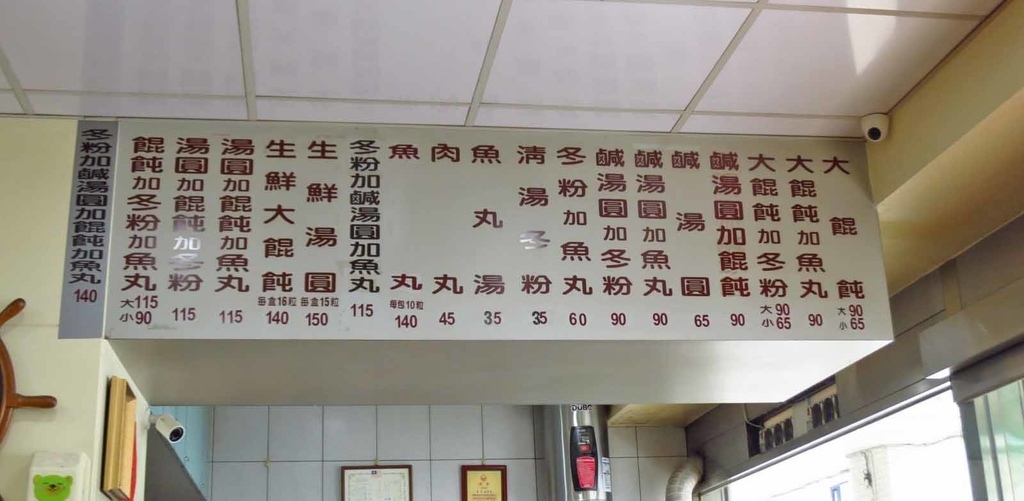 大餛飩 大90 小65
大餛飩加魚丸 90
大餛飩加冬粉 大90 小65
鹹湯圓加餛飩 90
鹹湯圓 65
鹹湯圓加魚丸 90
鹹湯圓加冬粉 90
冬粉加魚丸 60
清湯冬粉 35
魚丸湯 35
肉丸 45
魚丸 每包10粒 140
冬粉加鹹湯圓加魚丸 115
生鮮湯圓 每盒15粒 150
生鮮大餛飩 每盒16粒 140
湯圓加餛飩加魚丸 115
湯圓加餛飩加冬粉 115
餛飩加冬粉加魚丸 大115 小90
冬粉加鹹湯圓加餛飩加魚丸 140